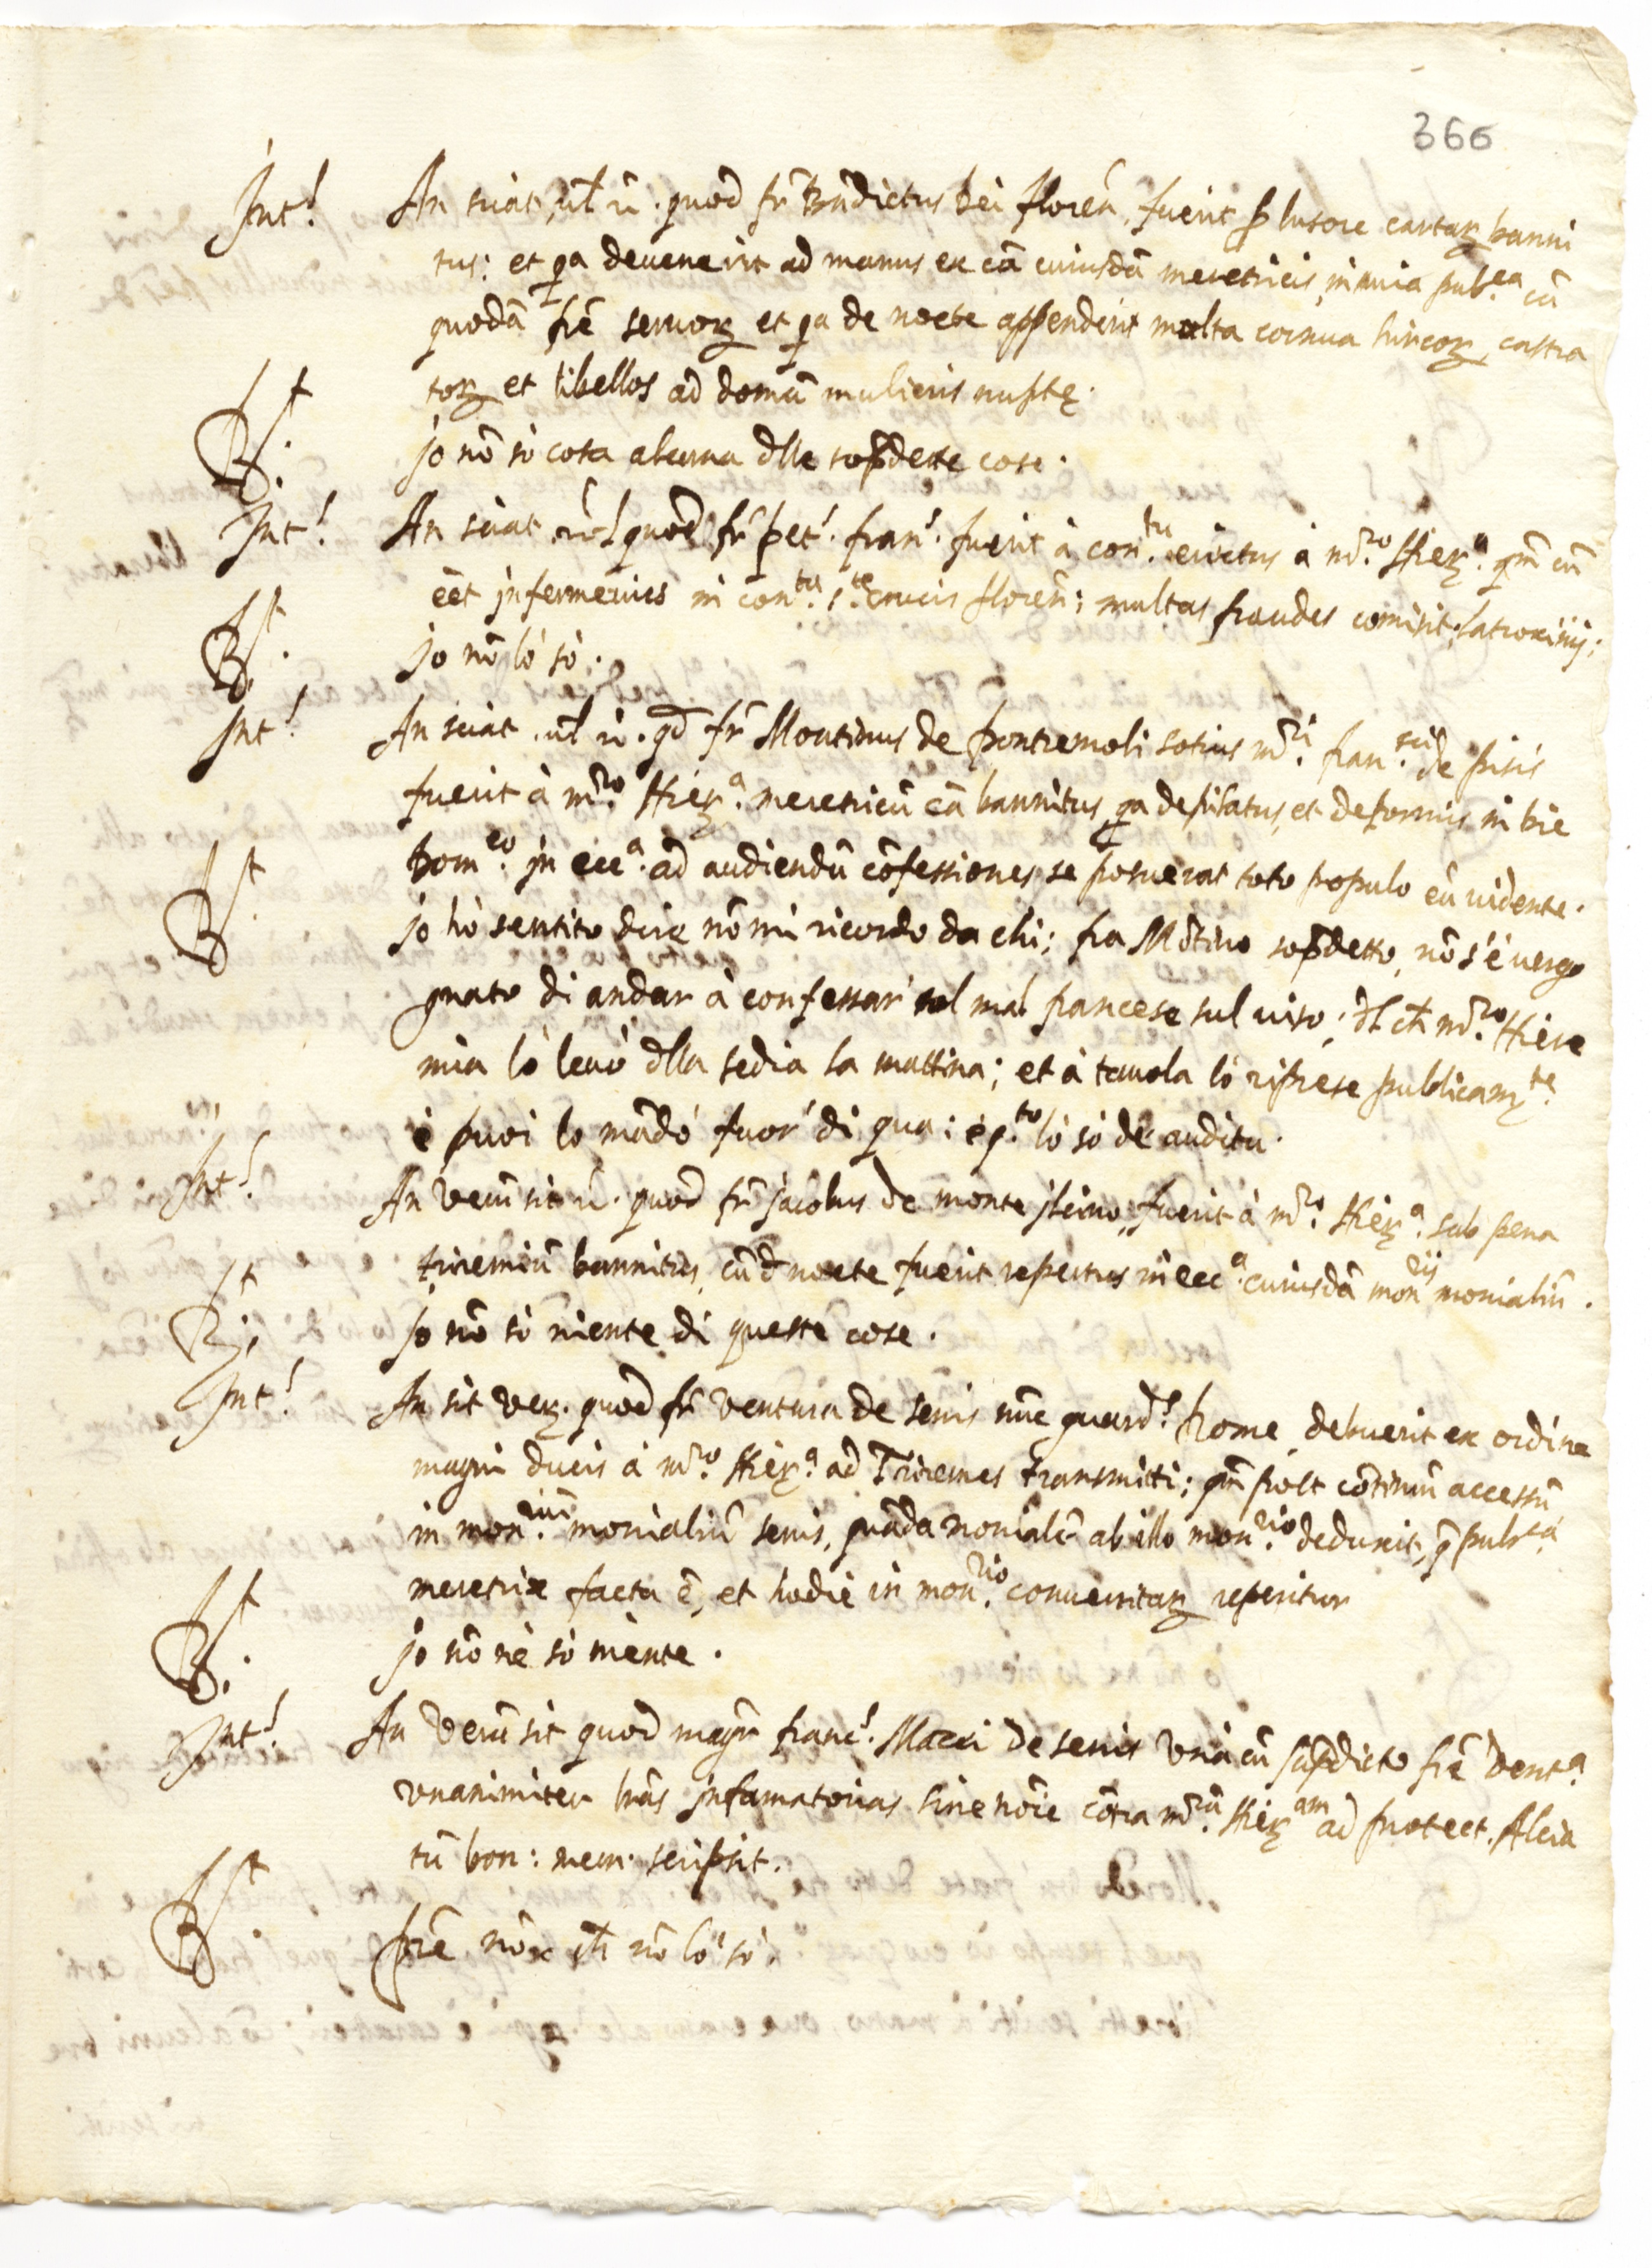 366
Int! An sciat, ul' n. quod fr̃ Bñdictus Dei florẽn, fuerit p lusore cartaꝝ banni
tus: et qa deuenerit ad manus ex cã cuiusdã meretricis in uia pub.ca cũ
quodã frẽ seruoꝝ et qa de nocte appenderit multa cornua hircoꝝ, castra
toꝝ et libellos ad domũ mulieris nuptę.
Rt. jo nõ sò cosa alcuna d̃lle sop̃dette cose.
Int! An sciat quod fr̃ pet! fran! fuerit à con.tu eiectus à m̃.ro Hieꝝ.a qm̃ cũ
eẽt jnfermerius in con.tu s.te crucis florẽn; multas fraudes comisit, latrocinij;
Rt. jo nõ lò sò.
Int! An sciat ul' n. qd̃ fr̃ Montinus de pontremoli sotius m̃.ri fran.sci de pisis
fuerit à m̃.ro Hieꝝ.a meretricũ cã bannitus, qa depilatus, et deformis in bie
bom.eo jn ecc.a ad audiendũ cõfessiones se posuerat toto populo eũ uidente.
Rt. jo hò sentito dire nõ mi ricordo da chi; fra Mõtino sop̃detto, nõ s'è uergo
gnato di andar à confessar' col mal francese sul uiso; d̃l ch̃ m̃.ro Hiere
mia lò leuò d̃lla sedia la mattina; et à tauola lò riprese publicam.te
è puoi lo mãdò fuor' di qua; è q.to lò sò de auditu.
Int! An verũ sit n. quod fr̃ jacobus de monte jlcino, fuerit à m̃.ro Hieꝝ.a sub pena
triremiũ bannitus, cũ d̃ nocte fuerit repertus in ecc.a cuiusdã mon.rij monialiũ.
Rt. jo nõ sò niente di queste cose.
Int! An sit veꝝ. quod fr̃ ventura de senis nũc guard! Rome, debuerit ex ordine
magni ducis à m̃.ro Hieꝝ.a ad Triremes transmitti; qm̃ post cõtinuũ accessũ
in mon.riũ monialiũ senis, quãda monialẽ ab illo mon.rio deduxit, q̃ pub.ca
meretrix facta ẽ, et hodie in mon.rio conuertitaꝝ reperitur
Rt. jo nõ nè sò niente.
Int! An verũ sit quod magr̃ franc! Macci de senis vna cũ sup̃dicto frẽ vent.a
vnanimiter lr̃as jnfamatorias sine noĩe cõtra m̃.rũ Hieꝝ.am ad protect. Alcia
tũ bon: mem. scripsit.
Rt. p̃re nõ, ch̃ nõ lò sò.